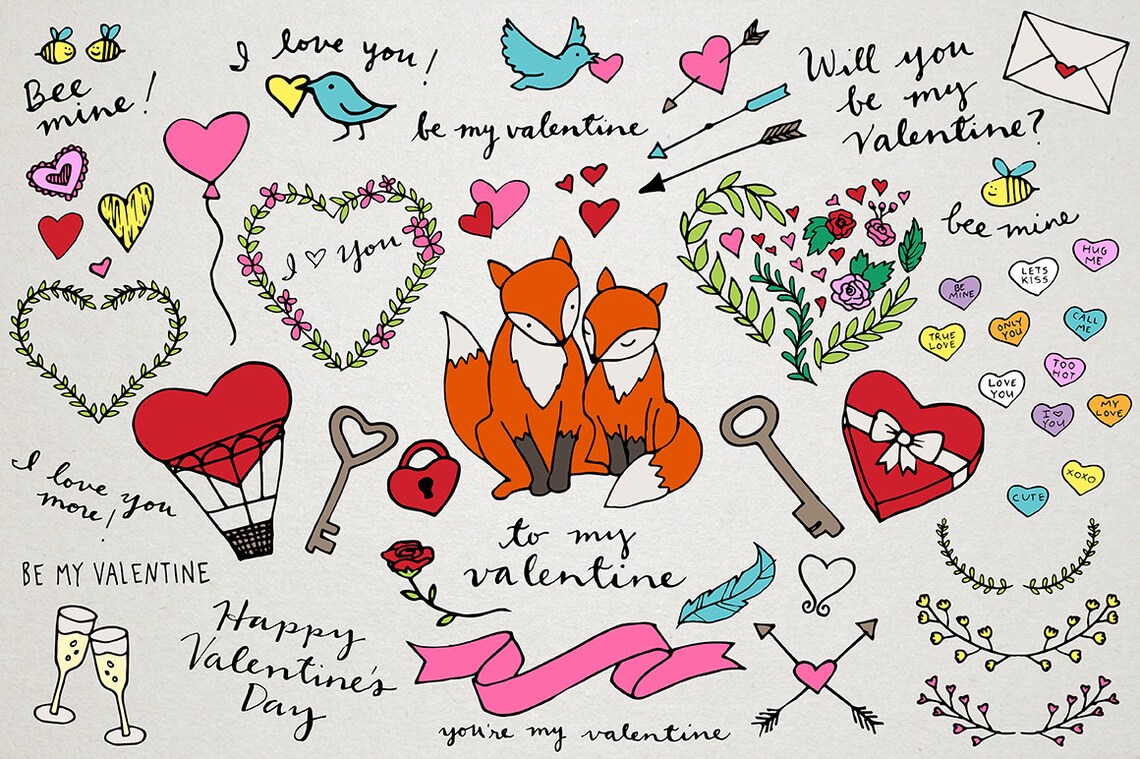 Bee
mine!
I love you!
be my valentine
Will you
be my
Valentine?
bee mine
I ♡ You
HUG
ME
LETS
KISS
BE
MINE
CALL
ME
ONLY
YOU
TRUE
LOVE
TOO
HOT
LOVE
YOU
MY
LOVE
I ♡
YOU
XOXO
CUTE
I love you
more!
BE MY VALENTINE
to my
valentine
Happy
Valentine's
Day
you're my valentine